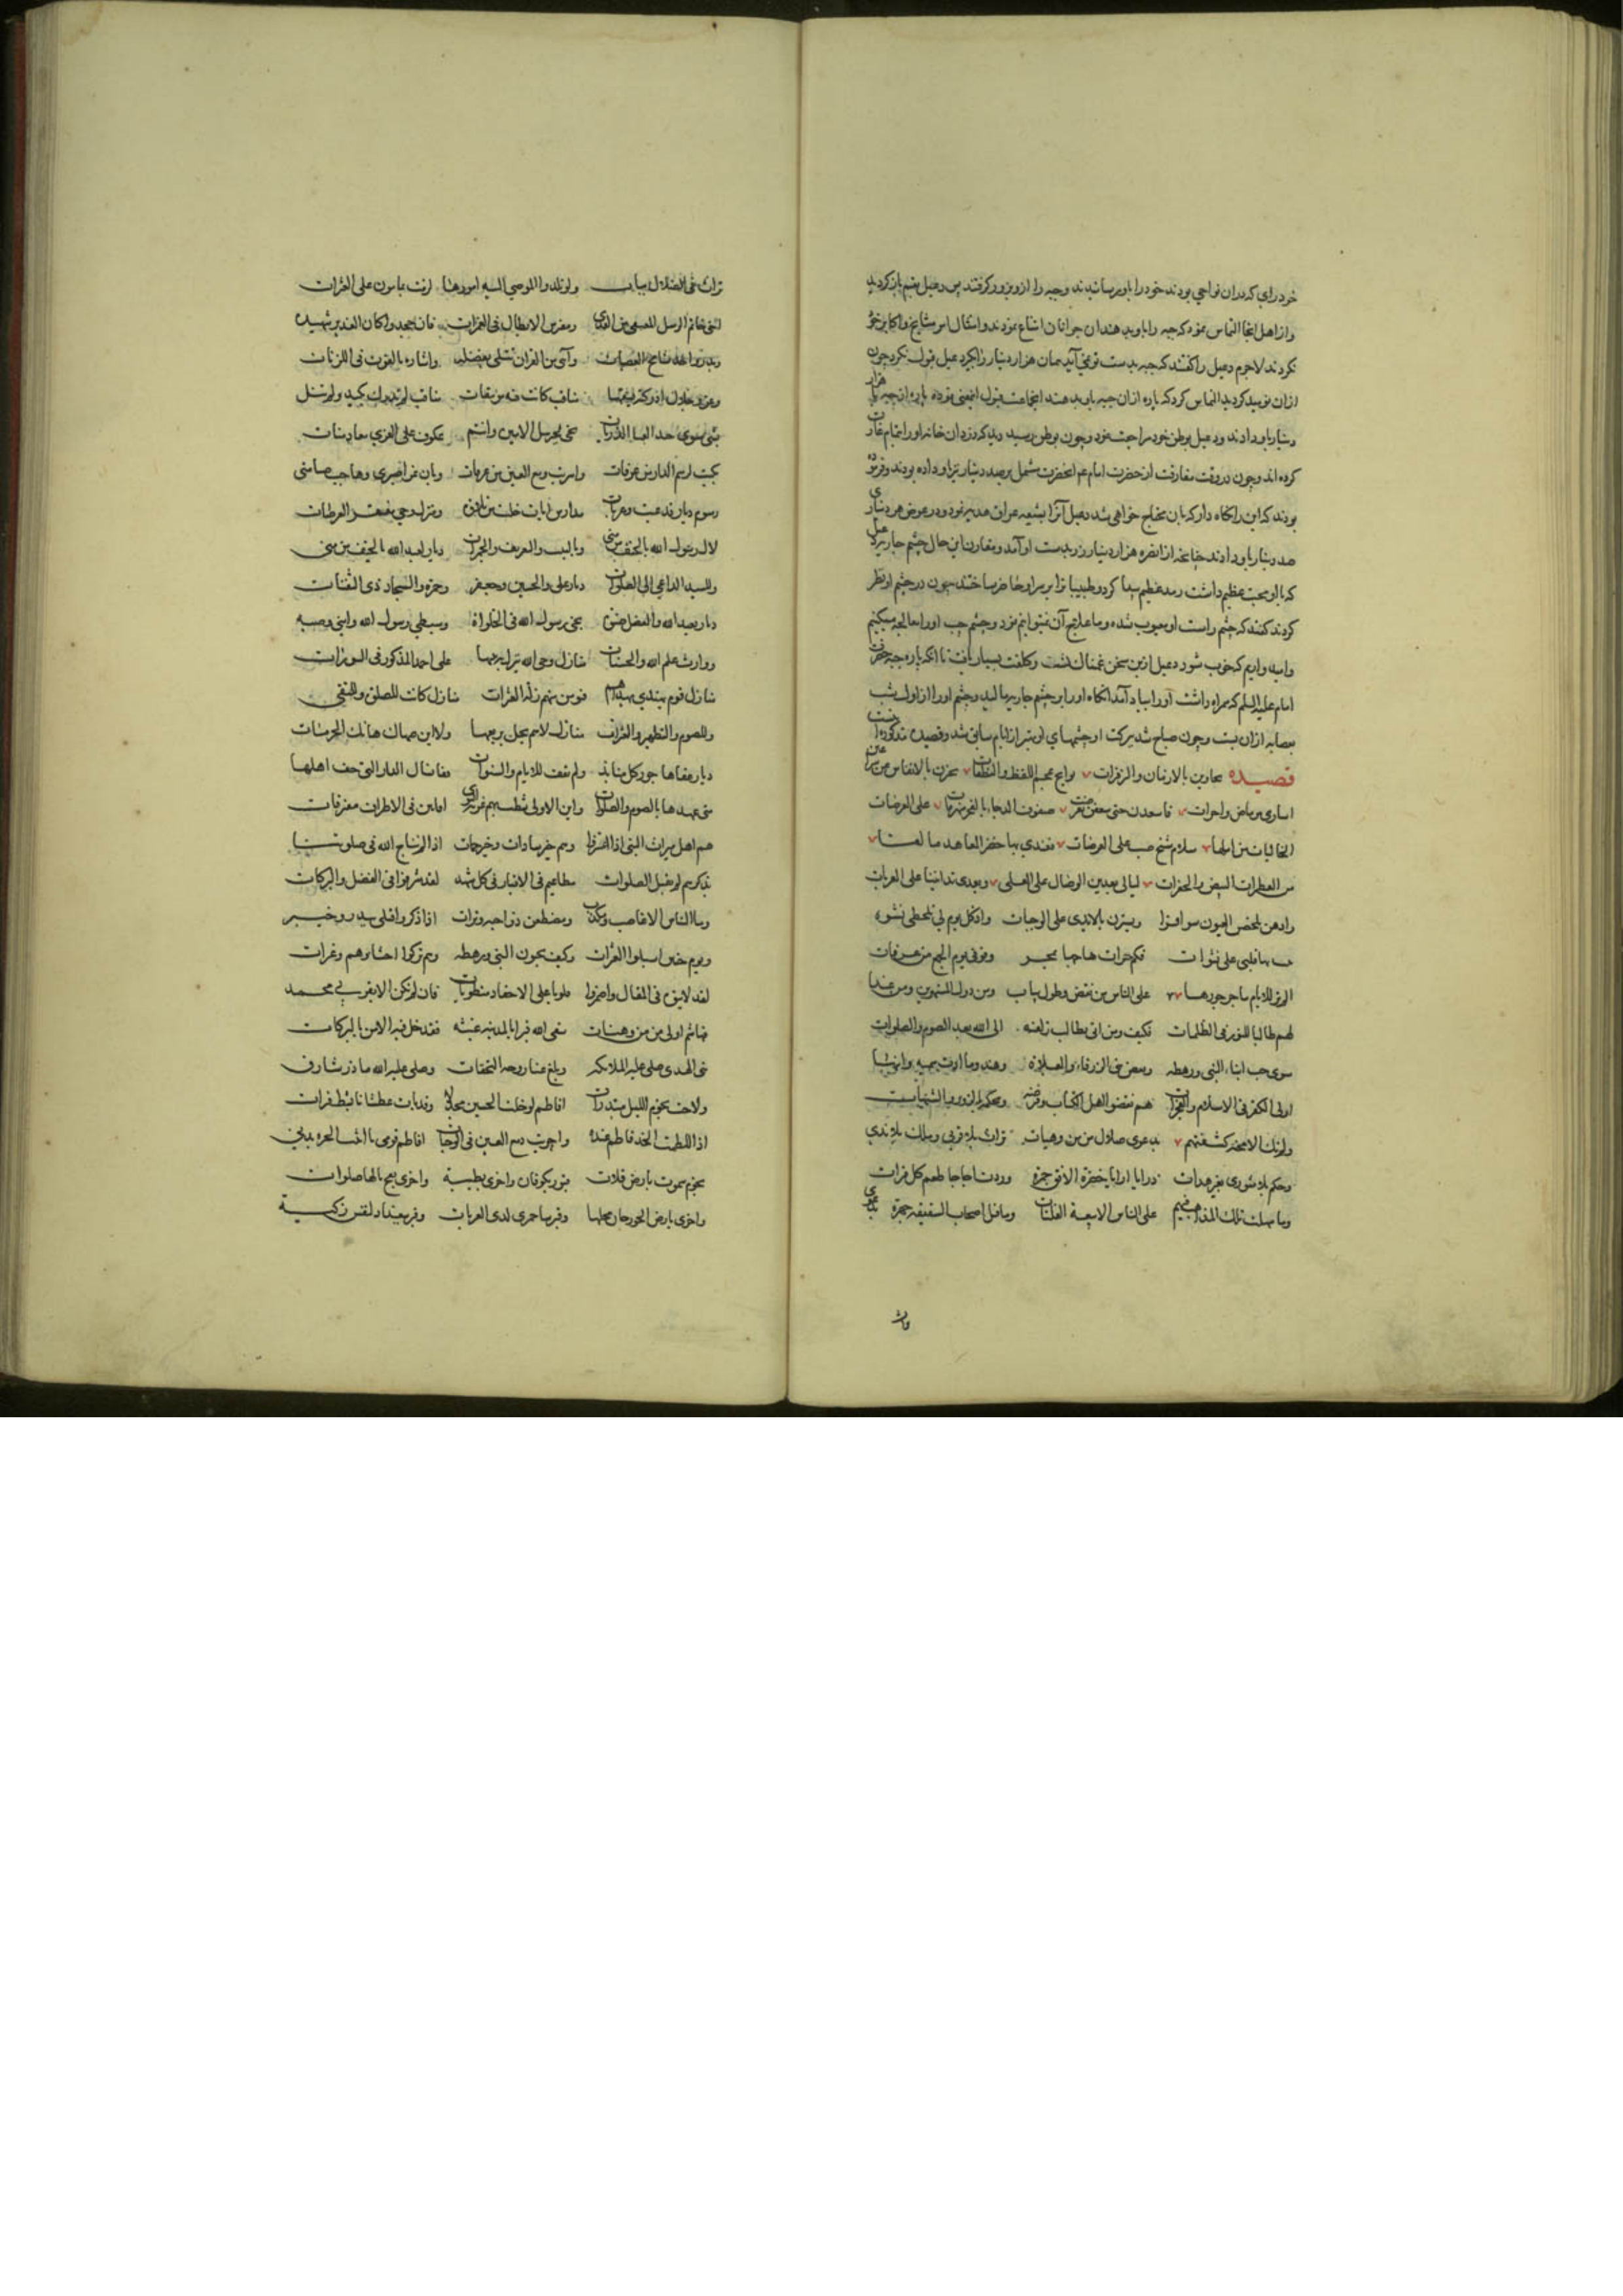 خود رای که دران نواحی بودند خود را باو رسانیدند و جبه را ازو بزور گرفتند پس دعبل بقم باز گردید
و از اهل انجا التماس نمود که جبه را باو بدهند ان جوانان امتناع نمودند و امتثال امر مشایخ و اکابر خود
نکردند لاجرم دعبل را گفتند که جبه بدست تو نمی آید همان هزار دینار را بگیر دعبل قبول نکرد چون
ازان نومید گردید التماس کرد که پاره ازان جبه باو بدهند انجماعت قبول انمعنی نموده پاره از جبه با هزار
دینار باو دادند و دعبل بوطن خود مراجعت نمود و چون بوطن رسید دید که دزدان خانه او را تمام غارت
کرده اند و چون در وقت مفارقت از حضرت امام ع انحضرت مشتمل بر صد دینار بزر او داده بودند و فرموده
بودند که این را نگاه دار که بان محتاج خواهی شد دعبل آنرا بشیعه عراق هدیه نمود و در عوض هر دیناری
صد دینار باو دادند چنانچه ازانقره هزار دینار زر بدست او آمد و مقارن این حال چشم جاریه دعبل
که با او محبت عظیم داشت رمد عظیم پیدا کرد و طبیبانرا بر سر او حاضر ساختند چون در چشم او نظر
کردند گفتند که چشم راست او معیوب شده و ما علاج آن نمیتوانیم نمود و چشم چپ او را معالجه میکنیم
و امید داریم که خوب شود دعبل ازین سخن غمناک گشت و کلفت بسیار یافت تا انکه پاره جبه حضرت
امام علیه السلم که همراه داشت او را بیاد آمد انگاه او را بر چشم جاریه مالید و چشم او را از اول شب
بعصابه ازان ببست و چون صباح شد ببرکت او چشمهای او بهتر از ایام سابق شد و قصیده مذکوره اینست
قصیده تجاوبن بالارنان والزفرات نوایح عجم اللفظ والنطقات یخبرن بالانفاس عن سر
اساری هوی ماض و اخر ات فاسعدن حتی تقوضت صفوف الدجا بالفجر منهزمات علی العرصات
الخالیات من المها سلام شج صب علی العرصات فعهدی بها خضر المعاهد مالفا
من العطرات البیض والخفرات لیالی یعدین الوصال علی القلی و یعدی تدانینا علی الغربات
واذهن یلحظن العیون سوافرا ویسترن بالایدی علی الوجنات واذ کل یوم لی بلحظی نشوة
یبیت بها قلبی علی نشوات فکم حسرات هاجها بمحسر وقوفی یوم الجمع من عرفات
الم تر للایام ما جر جورها علی الناس من نقض و طول شتات ومن دول المستهزین ومن غدا
بهم طالبا للنور فی الظلمات فکیف ومن انی بطالب زلفة الی الله بعد الصوم والصلوات
سوی حب ابناء النبی ورهطه وبغض بنی الزرقاء والعبلات وهند وما ادت سمیة وابنها
اولی الکفر فی الاسلام والفجرات هم نقضوا عهد الکتاب وفرضه ومحکمه بالزور والشبهات
ولم تک الا محنة کشفتهم بدعوی ضلال من هن وهنات تراث بلا قربی وملک بلا هدی
وحکم بلا شوری بغیر هدات رزایا ارتنا خضرة الافق حمرة وردت اجاجا طعم کل فرات
وما سهلت تلک المذاهب فیهم علی الناس الا بیعة الفلتات وما قیل اصحاب السقیفة جهرة بدعوی
تراث فی الضلال بتات ولو قلدوا الموصی الیه امورها لزمت بمامون علی العثرات
اخی خاتم الرسل المصفی من القذی ومفترس الابطال فی الغمرات فان جحدوا کان الغدیر شهیده
وبدر واحد شامخ الهضبات وآی من القران تتلی بفضله وایثاره بالقوت فی اللزبات
وعز خلال ادرکته بسبقها مناقب کانت فیه مؤتنفات مناقب لم تدرک بکید ولم تنل
بشی سوی حد القنا الذربات نجی لجبریل الامین وانتم عکوف علی العزی معا ومنات
بکیت لرسم الدار من عرفات واجریت دمع العین من عبرات وبان عری صبری وهاجت صبابتی
رسوم دیار قد عفت وعرات مدارس ایات خلت من تلاوة ومنزل وحی مقفر العرصات
لال رسول الله بالخیف من منی وبالبیت والتعریف والجمرات دیار لعبد الله بالخیف من منی
وللسید الداعی الی الصلوات دیار علی والحسین وجعفر وحمزة والسجاد ذی الثفنات
دیار لعبد الله والفضل صنوه نجی رسول الله فی الخلوات وسبطی رسول الله وابنی وصیه
ووارث علم الله والحسنات منازل وحی الله ینزل بینها علی احمد المذکور فی السورات
منازل قوم یهتدی بهداهم فیومن منهم زلة العثرات منازل کانت للصلوة وللتقی
وللصوم والتطهیر والحسنات منازل لا تیم یحل بربعها ولا ابن صهاک هاتک الحرمات
دیار عفاها جور کل منابذ ولم تعف للایام والسنوات قفا نسال الدار التی خف اهلها
متی عهدها بالصوم والصلوات واین الاولی شطت بهم غربة النوی افانین فی الاطراف مفترقات
هم اهل میراث النبی اذا اعتزوا وهم خیر سادات وخیر حمات اذا لم نناج الله فی صلوتنا
بذکرهم لم یقبل الصلوات مطاعیم فی الاقتار فی کل مشهد لقد شرفوا فی الفضل والبرکات
وما الناس الا غاصب ومکذب ومضطغن ذو احنة وترات اذا ذکروا قتلی ببدر وخیبر
ویوم حنین اسبلوا العبرات وکیف یحبون النبی ورهطه وهم ترکوا احشاءهم وغرات
لقد لاینوه فی المقال واضمروا قلوبا علی الاحقاد منطویات فان لم تکن الا بقربی محمد
فهاشم اولی من هن وهنات سقی الله قبرا بالمدینة غیثه فقد حل فیه الامن بالبرکات
نبی الهدی صلی علیه الملایکه وبلغ عنا روحه التحفات وصلی علیه الله ما ذر شارق
ولاحت نجوم اللیل مبتدرات افاطم لو خلت الحسین مجدلا وقد مات عطشانا بشط فرات
اذا للطمت الخد فاطم عنده واجریت دمع العین فی الوجنات افاطم قومی یا ابنة الخیر واندبی
نجوم سموات بارض فلات قبور بکوفان واخری بطیبة واخری بفخ نالها صلوات
واخری بارض الجوزجان محلها وقبر بباخمری لدی الغربات وقبر ببغداد لنفس زکیة
وقبر